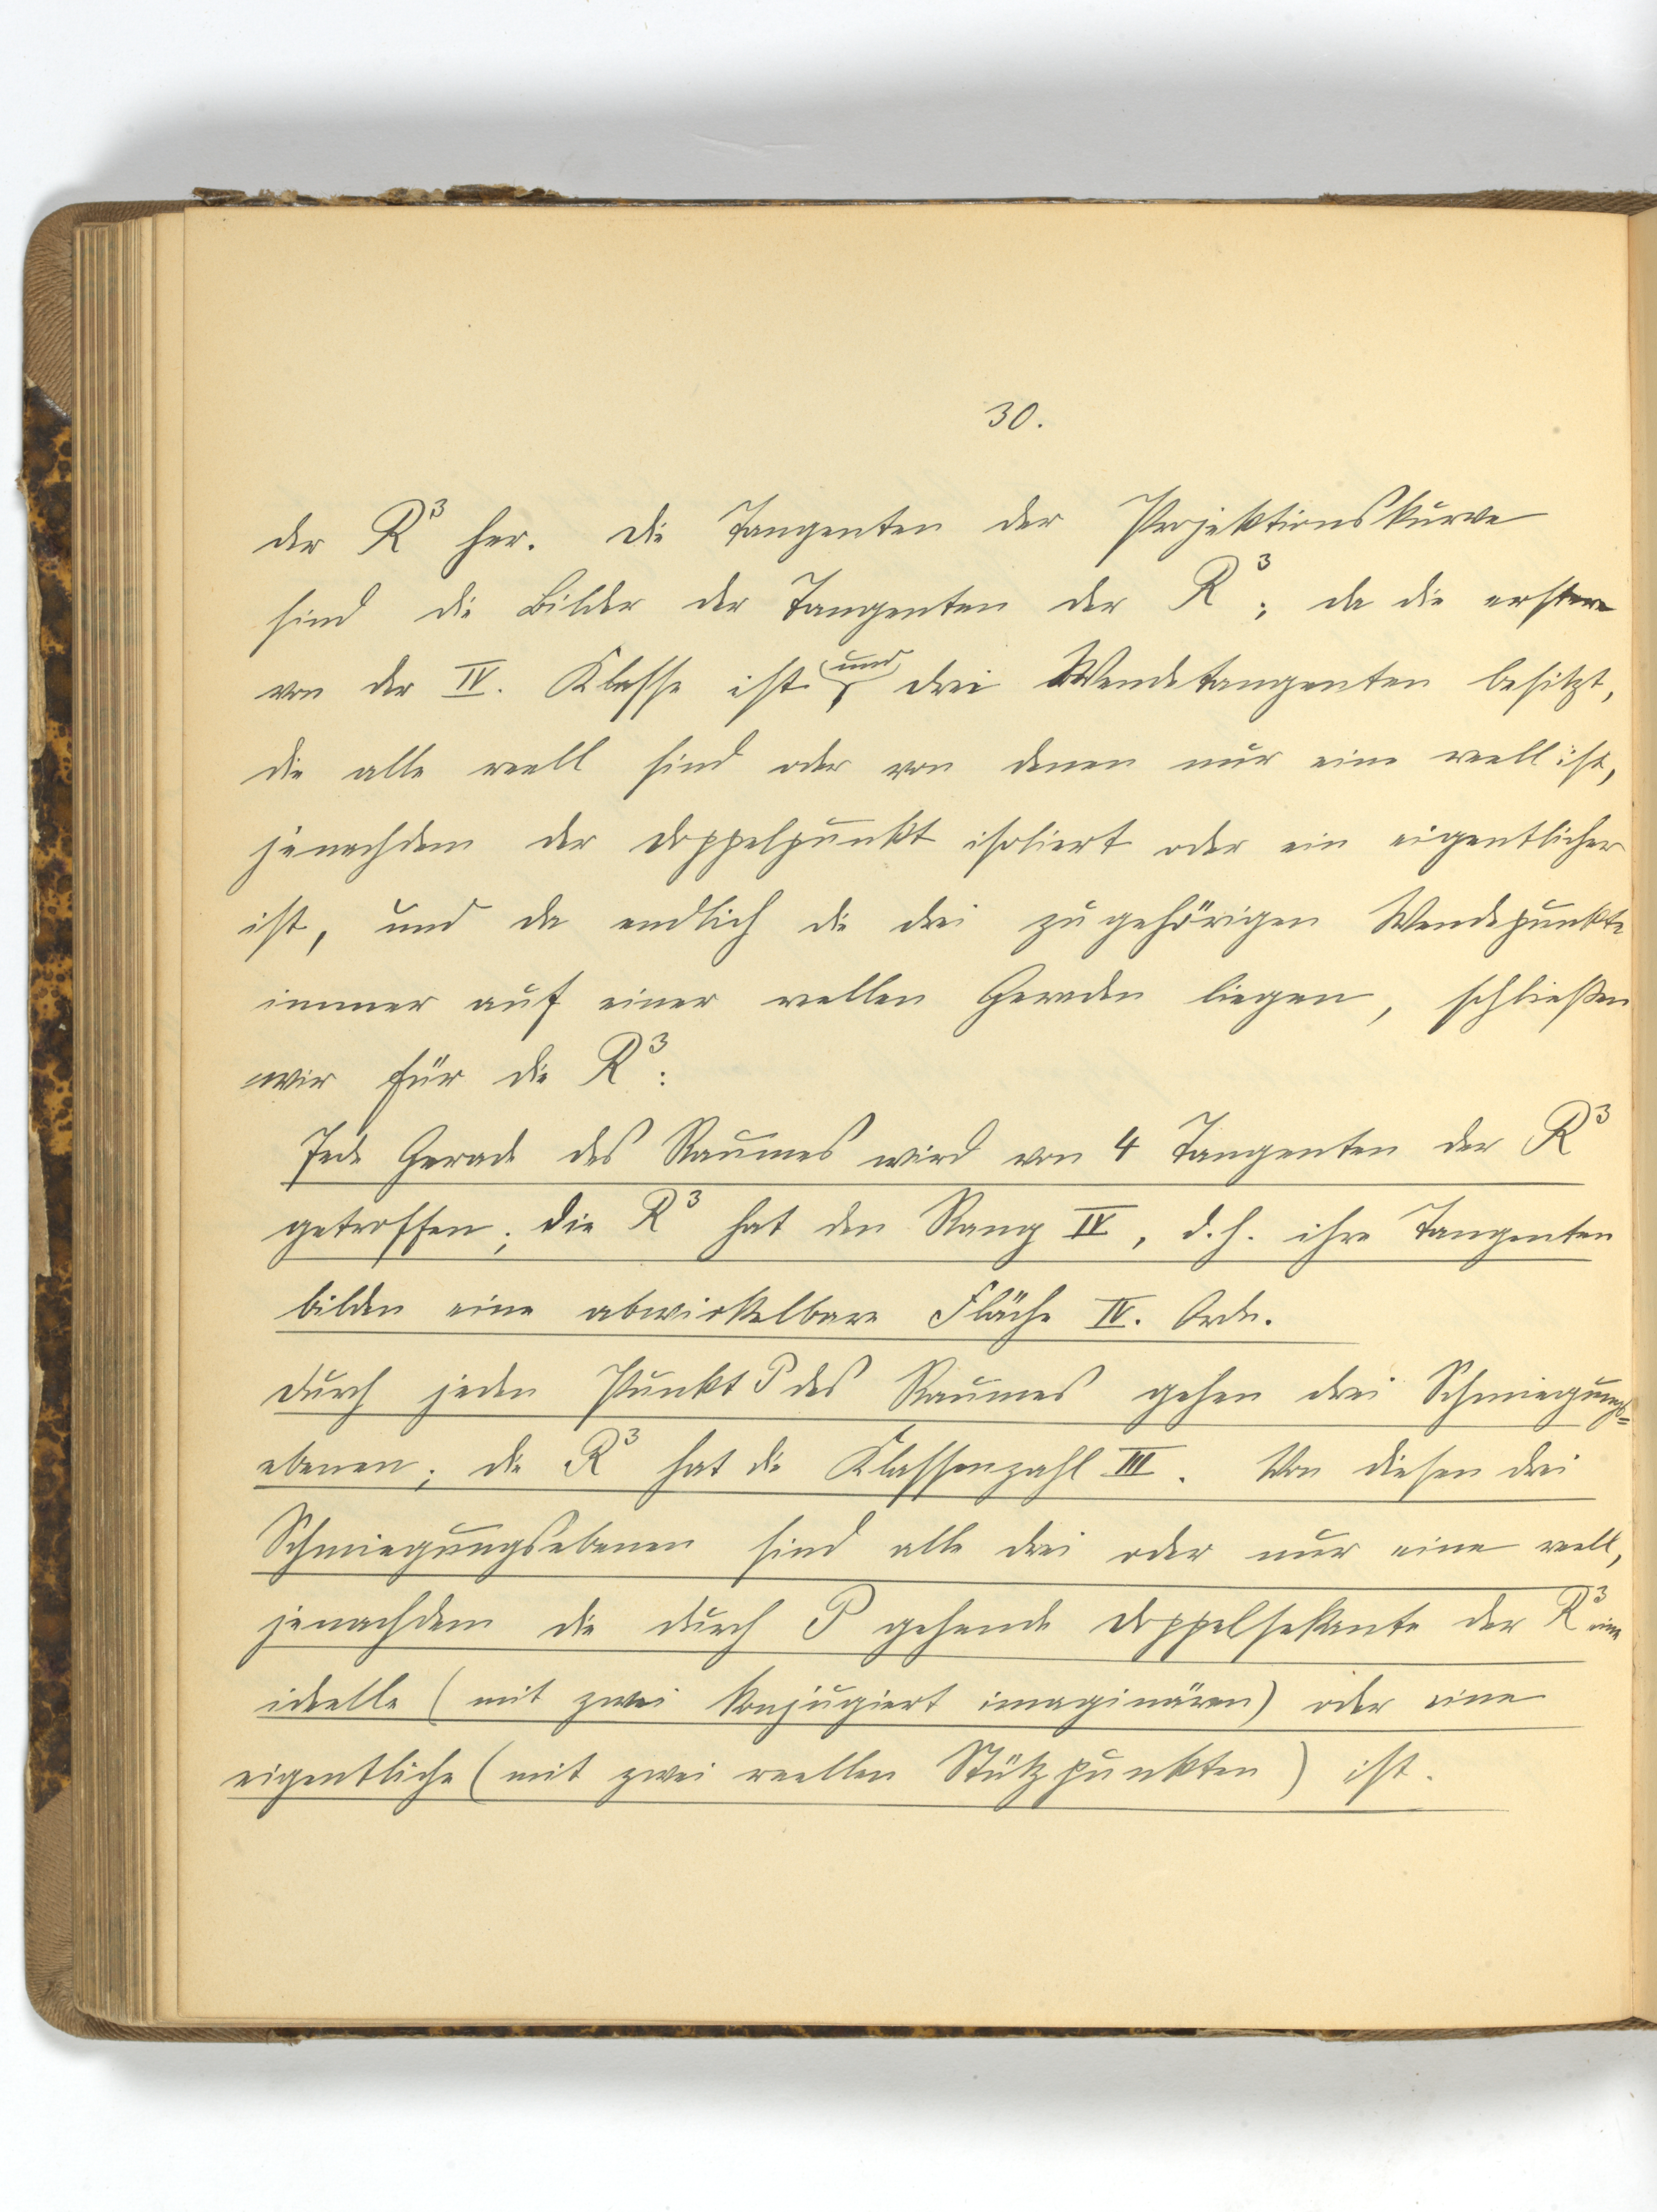 30.
der R³ her. Die Tangenten der Projektionskurve
sind die Bilder der Tangenten der R³; da die erstere
von der IV. Klasse ist und drei Wendetangenten besitzt,
die alle reell sind oder von denen nur eine reell ist,
jenachdem der Doppelpunkt isoliert oder ein eigentlicher
ist, und da endlich die drei zugehörigen Wendepunkte
immer auf einer reellen Geraden liegen, schließen
wir für die R³:
Jede Gerade des Raumes wird von 4 Tangenten der R³
getroffen; die R³ hat den Rang IV, d.h. ihre Tangenten
bilden eine abwickelbare Fläche IV. Ordn.
Durch jeden Punkt P des Raumes gehen drei Schmiegungs=
ebenen; die R³ hat die Klassenzahl III. Von diesen drei
Schmiegungsebenen sind alle drei oder nur eine reell,
jenachdem die durch P gehende Doppelsekante der R³ eine
ideelle (mit zwei konjugiert imaginären) oder eine
eigentliche (mit zwei reellen Stützpunkten) ist.